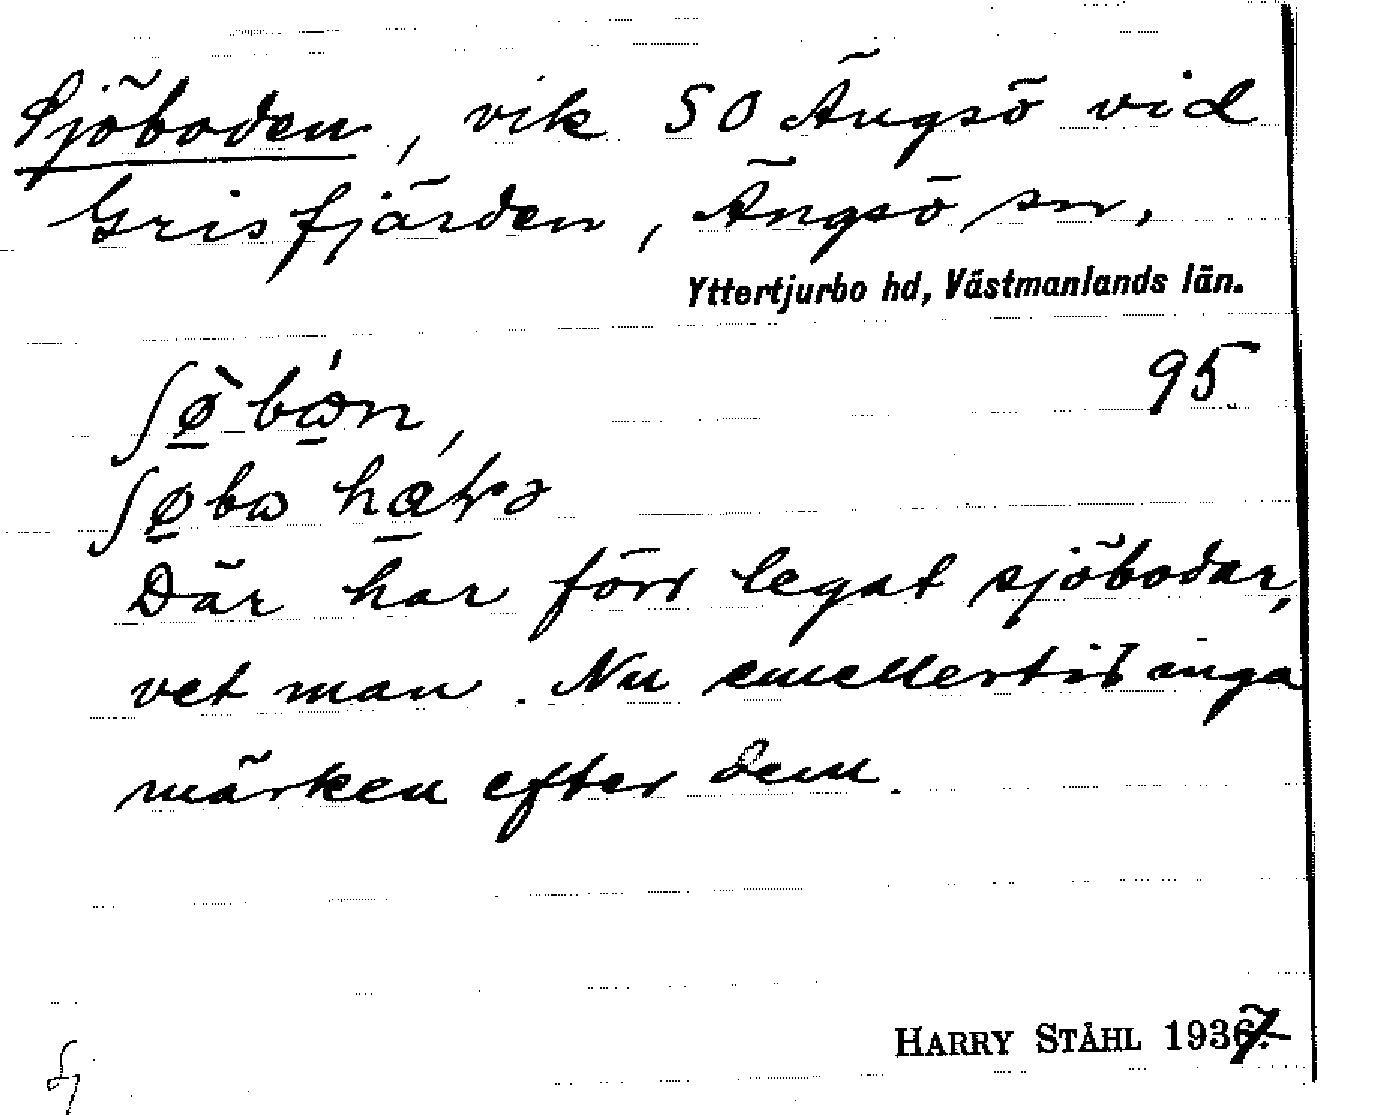 Sjöboden, vik SO Ängsö vid
Grisfjärden, Ängsö sn.
Yttertjurbo hd, Västmanlands län.
95
ʃø̀bώn,
ʃøbω
Där har förr legat sjöbodar,
vet man. Nu emellertid inga
märken efter dem.
HARRY STÅHL 1937